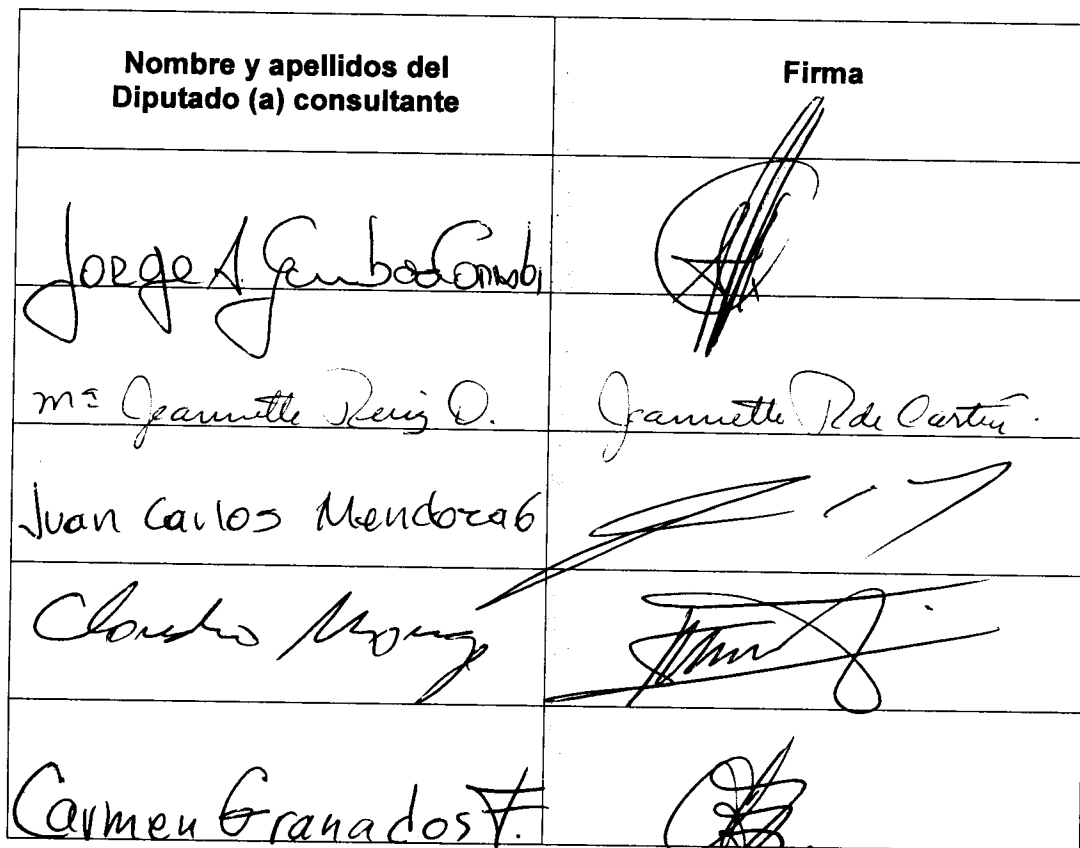 Nombre y apellidos del
Diputado (a) consultante
Firma
Jorge A. Gamboa
Mª Jeannette Ruiz D. Jeannette R de
Juan Carlos Mendoza G
Claudio Monge
Carmen Granados F.